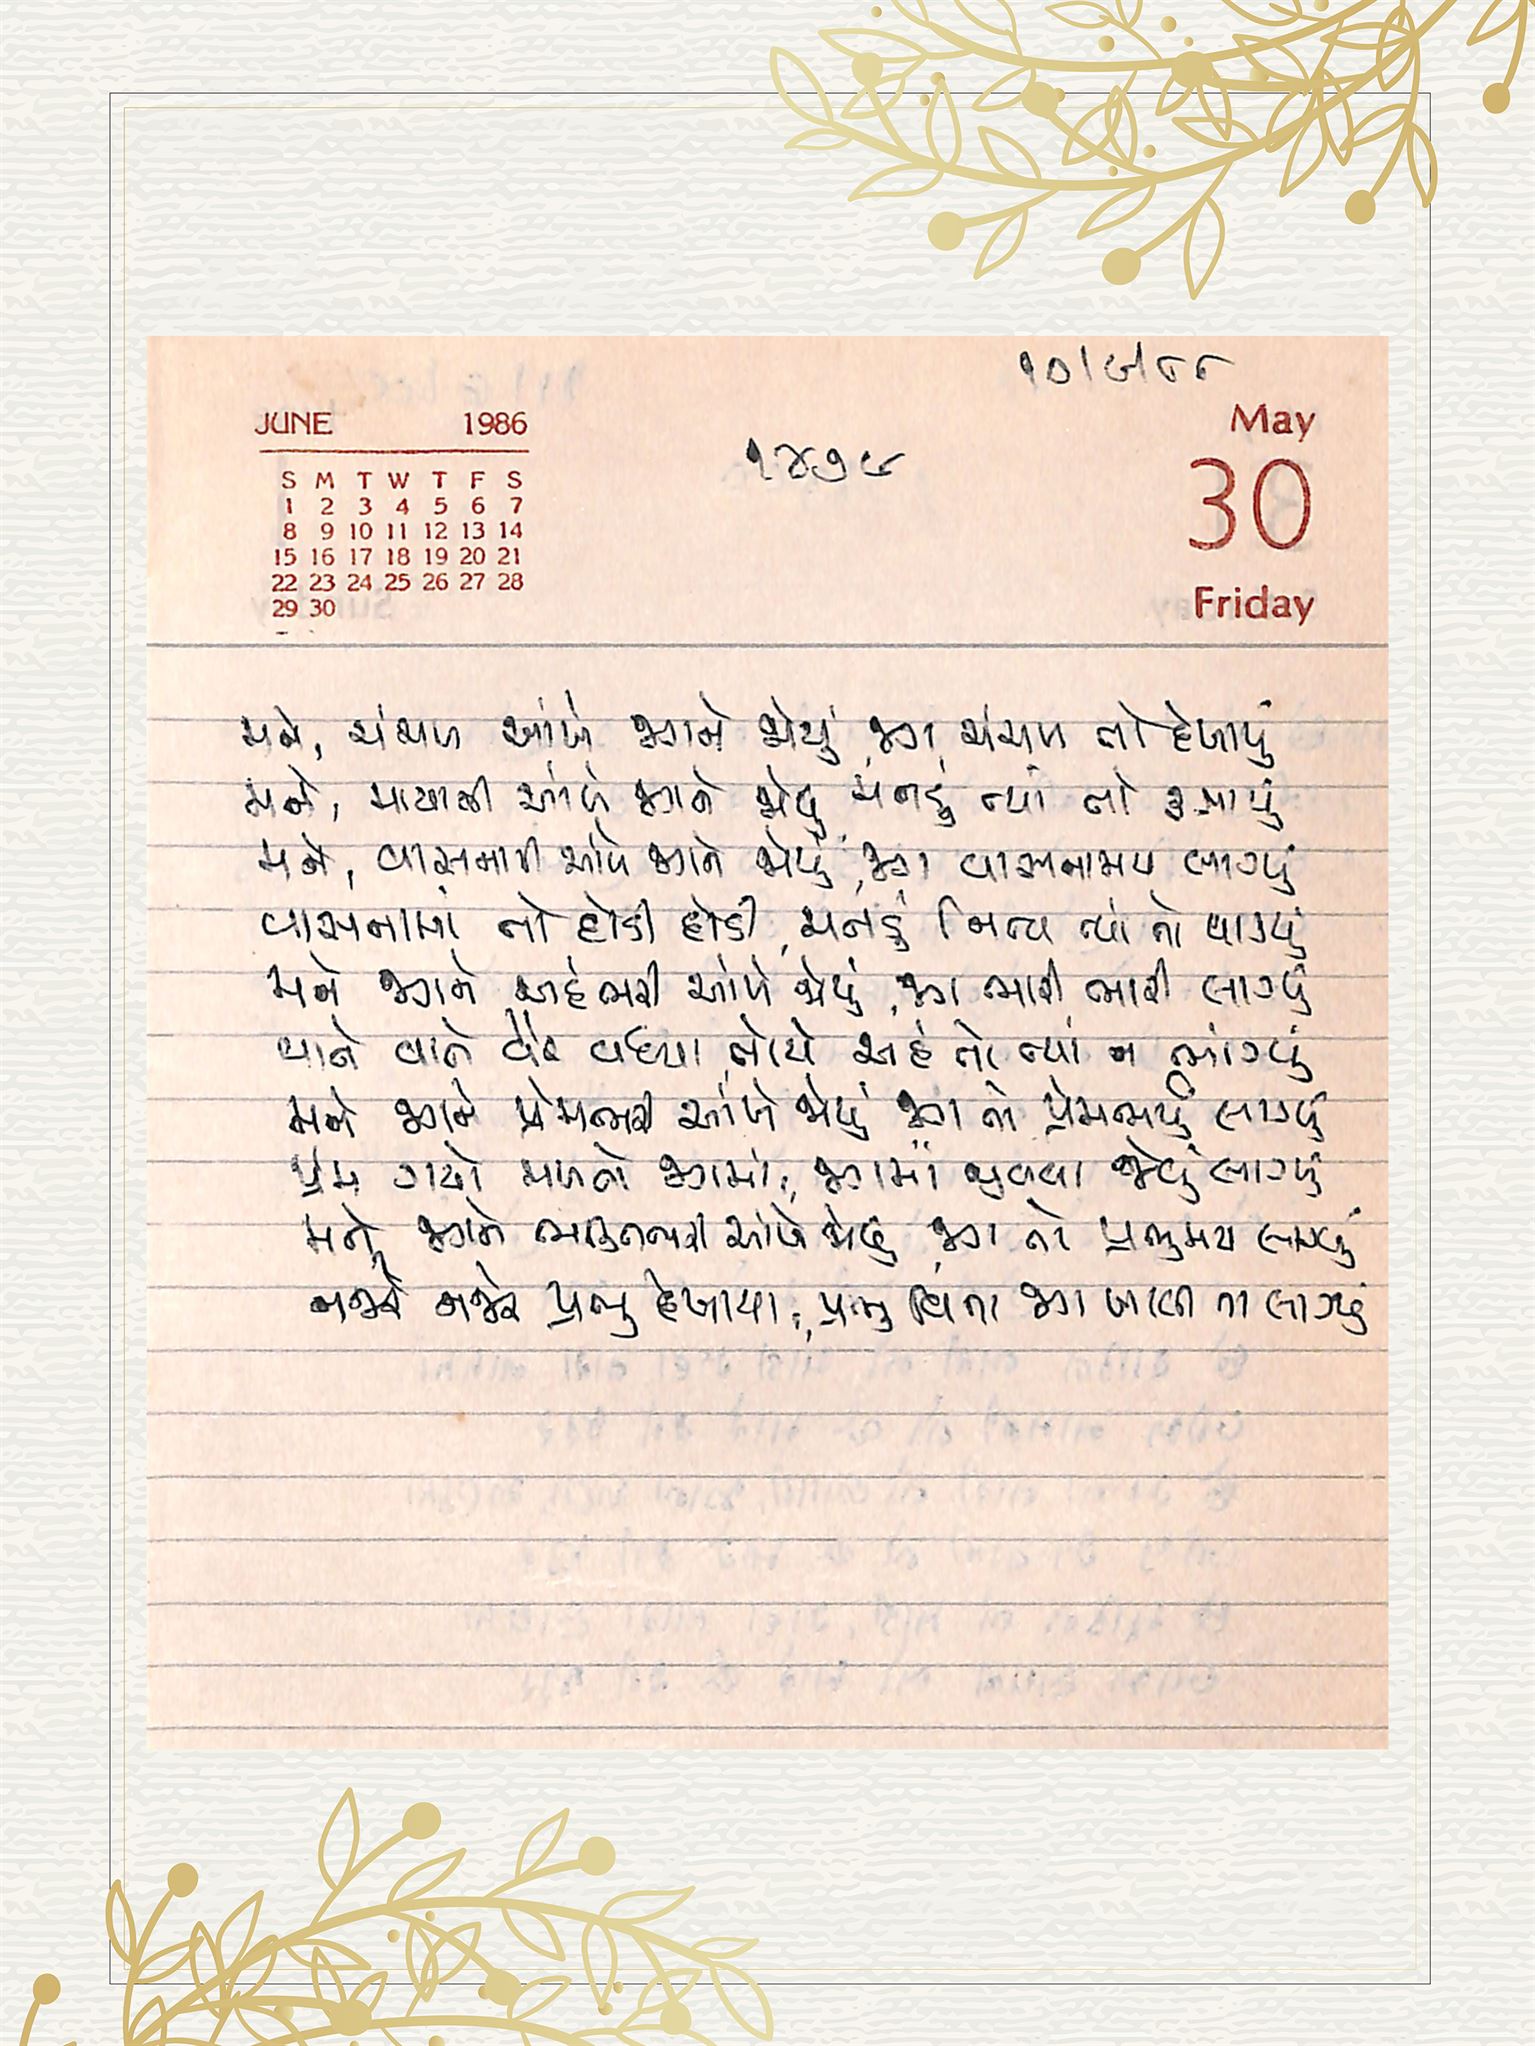 ૧૦/૯/૮૮
JUNE 1986
May
૧૪૭૯
30
S M T W T F S
1 2 3 4 5 6 7
8 9 10 11 12 13 14
15 16 17 18 19 20 21
22 23 24 25 26 27 28
29 30
Friday
મને, ચંચળ આંખે જગને જોયું, જગ ચંચળ તો દેખાયું
મને, માયાભરી આંખે જગને જોયું મનડું ત્યાં તો
મને, વાસનાભરી આંખે જગને જોયું, જગ વાસનામય લાગ્યું
વાસનામાં તો દોડી દોડી, મનડું નિત્ય ત્યાં તો થાક્યું
મને જગને અહંભરી આંખે જોયું, જગ ભારી ભારી લાગ્યું
વાતે વાતે વૈર વધ્યા, તોયે અહં તો ત્યાં ન ભાંગ્યું
મને જગને પ્રેમભરી આંખે જોયું જગ તો પ્રેમભર્યું લાગ્યું
પ્રેમ ગયો મળતો જગમાં, જગમાં જીવવા જેવું લાગ્યું
મને, જગને ભક્તિભરી આંખે જોયું, જગ તો પ્રભુમય લાગ્યું
નજરે નજરે પ્રભુ દેખાયા, પ્રભુ વિના જગ ખાલી ના લાગ્યું